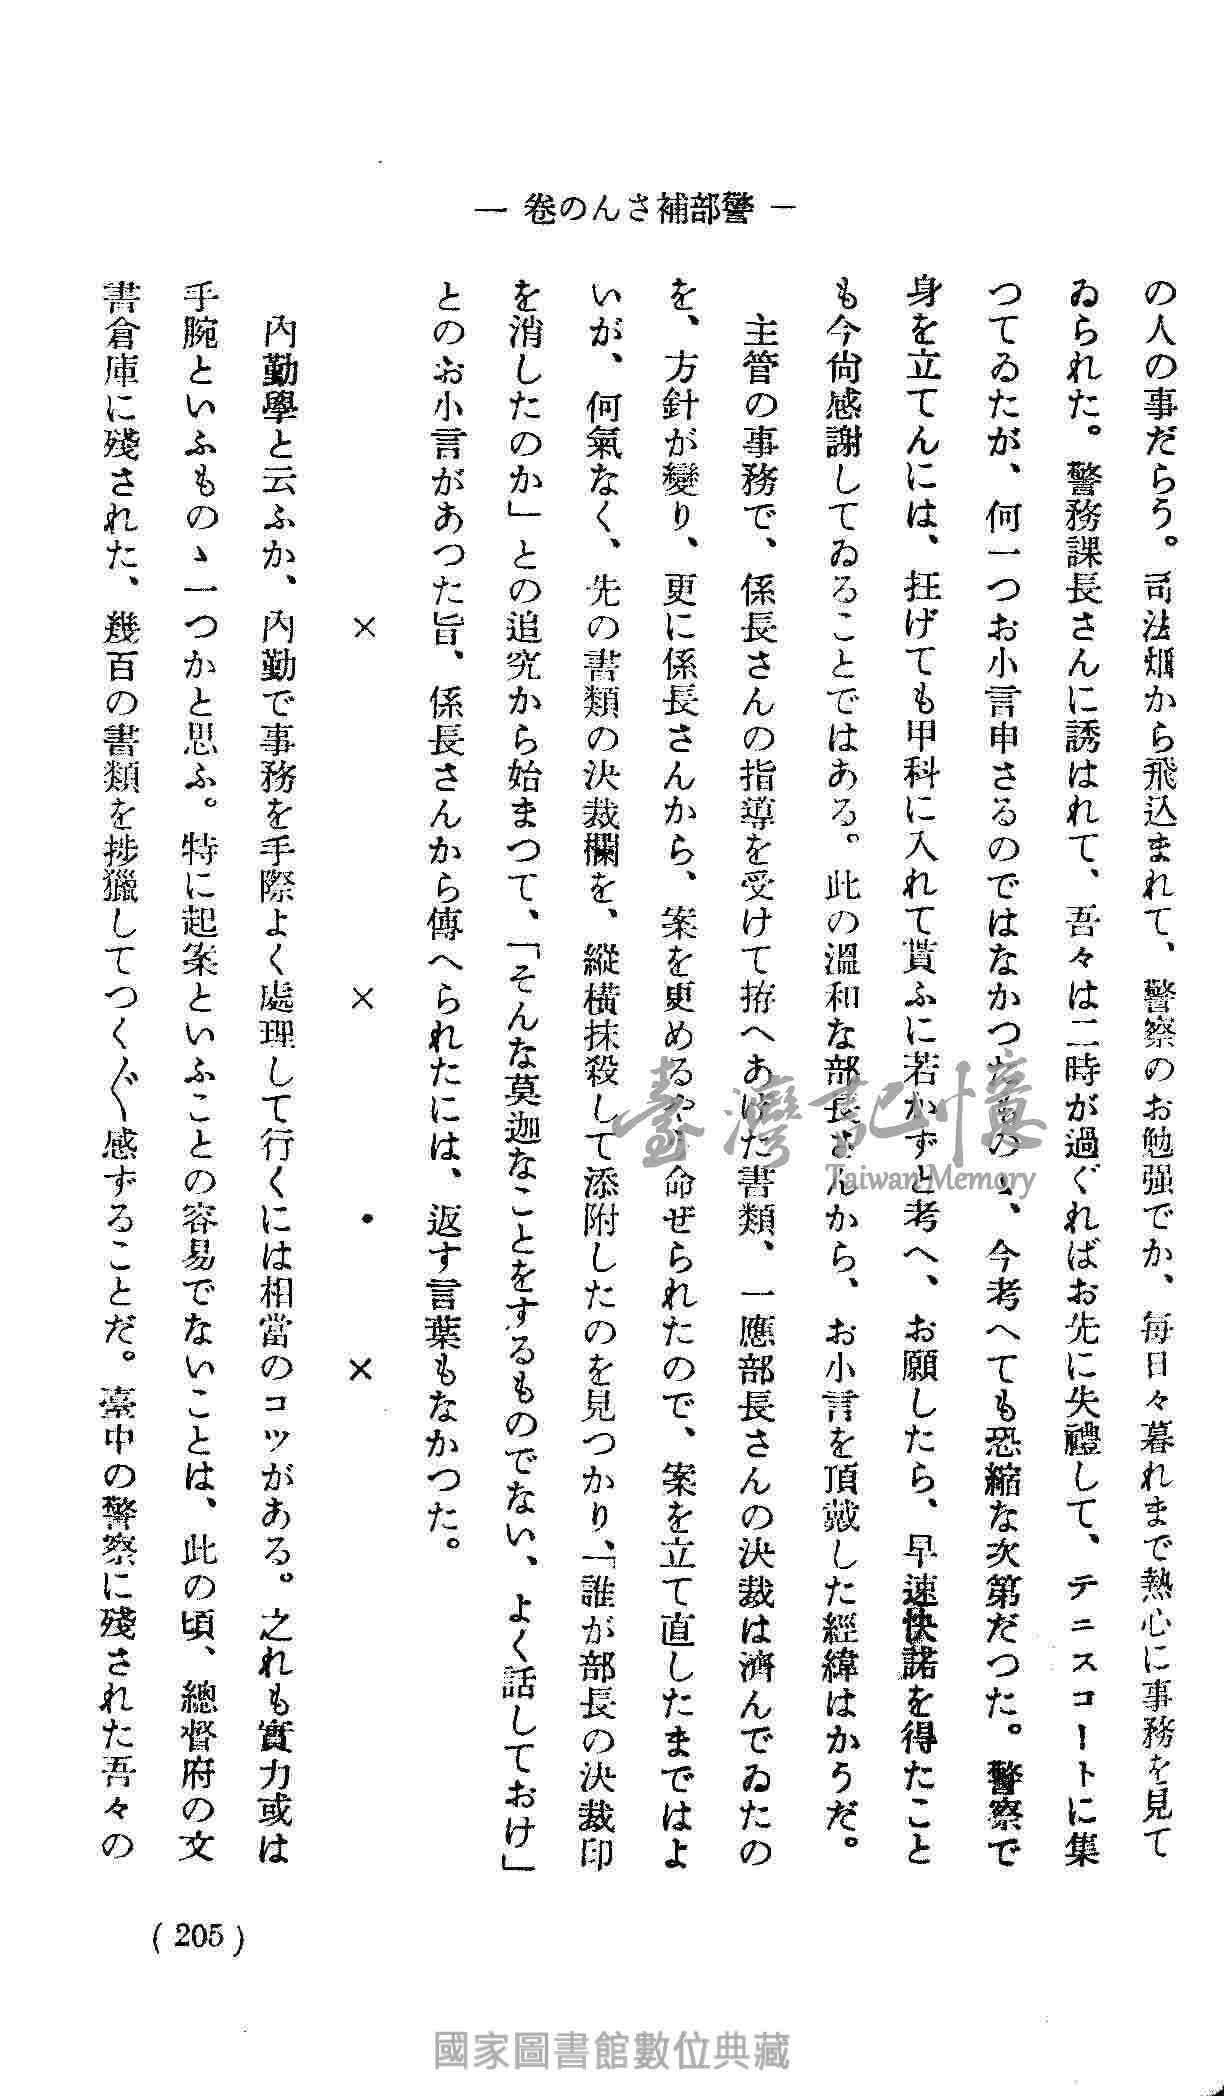 ― 警部補さんの卷 ―
の人の事だらう。司法畑から飛込まれて、警察のお勉强でか、每日々暮れまで熱心に事務を見て
ゐられた。警務課長さんに誘はれて、吾々は二時が過ぐればお先に失禮して、テニスコートに集
つてゐたが、何一つお小言申さるのではなかつたものゝ、今考へても恐縮な次第だつた。警察で
身を立てんには、抂げても甲科に入れて貰ふに若かずと考へ、お願したら、早速快諾を得たこと
も今尙感謝してゐることではある。此の溫和な部長さんから、お小言を頂戴した經緯はかうだ。
主管の事務で、係長さんの指導を受けて拵へあげた書類、一應部長さんの決裁は濟んでゐたの
を、方針が變り、更に係長さんから、案を更めるやう命ぜられたので、案を立て直したまではよ
いが、何氣なく、先の書類の決裁欄を、縱橫抹殺して添附したのを見つかり、「誰が部長の決裁印
を消したのか」との追究から始まつて、「そんな莫迦なことをするものでない、よく話しておけ」
とのお小言があつた旨、係長さんから傳へられたには、返す言葉もなかつた。
× × • ×
內勤學と云ふか、內勤で事務を手際よく處理して行くには相當のコツがある。之れも實力或は
手腕といふものゝ一つかと思ふ。特に起案といふことの容易でないことは、此の頃、總督府の文
書倉庫に殘された、幾百の書類を捗獵してつく〲感ずることだ。臺中の警察に殘された吾々の
(205)
臺灣記憶
Taiwan Memory
國家圖書館數位典藏